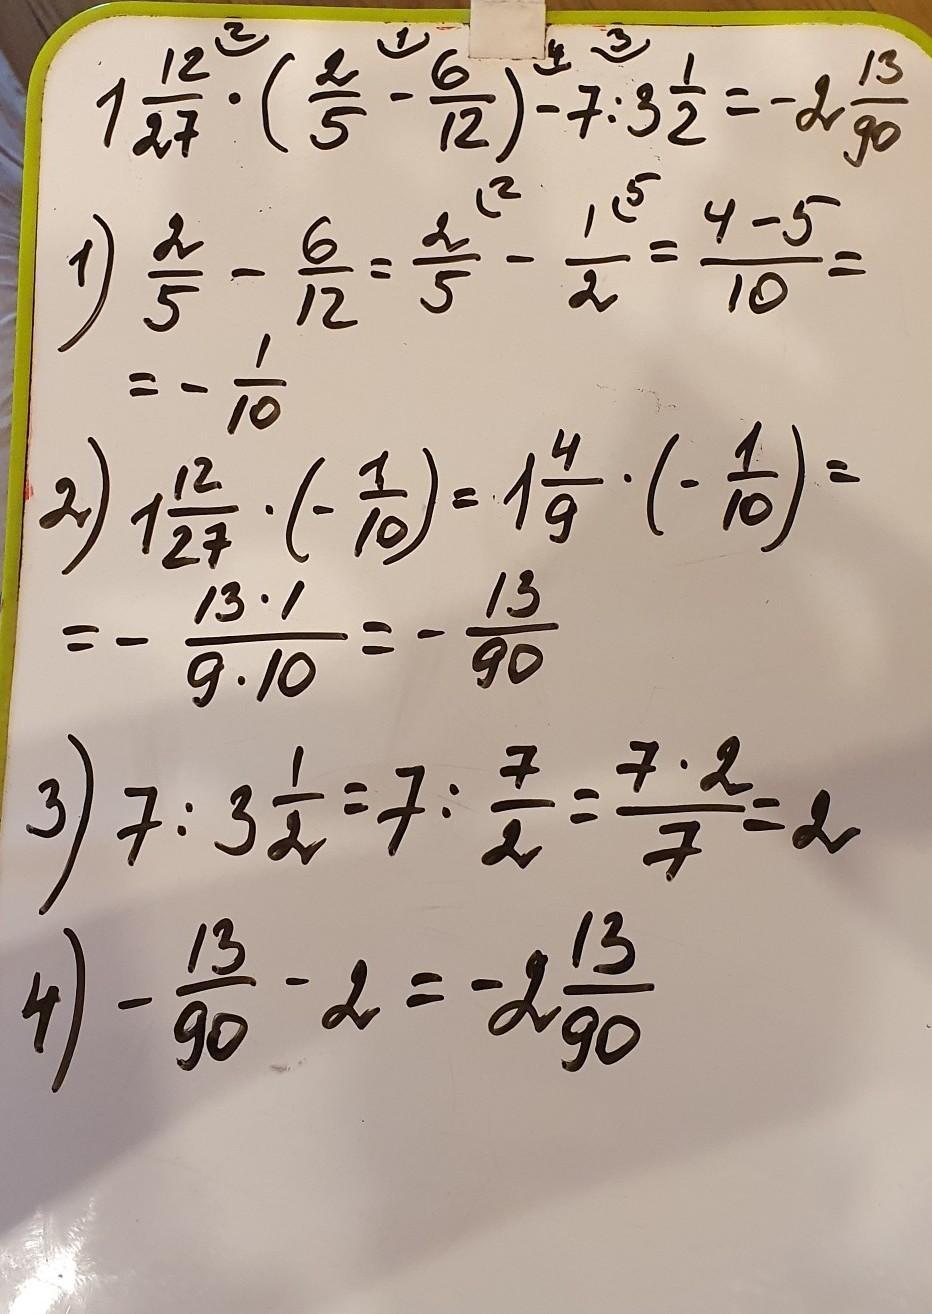 1 12/27 · (2/5 - 6/12) - 7 : 3 1/2 = -2 13/90
1) 2/5 - 6/12 = 2/5 - 1/2 = (4-5)/10 =
= - 1/10
2) 1 12/27 · (- 1/10) = 1 4/9 · (- 1/10) =
= - (13·1)/(9·10) = - 13/90
3) 7 : 3 1/2 = 7 : 7/2 = (7·2)/7 = 2
4) - 13/90 - 2 = -2 13/90